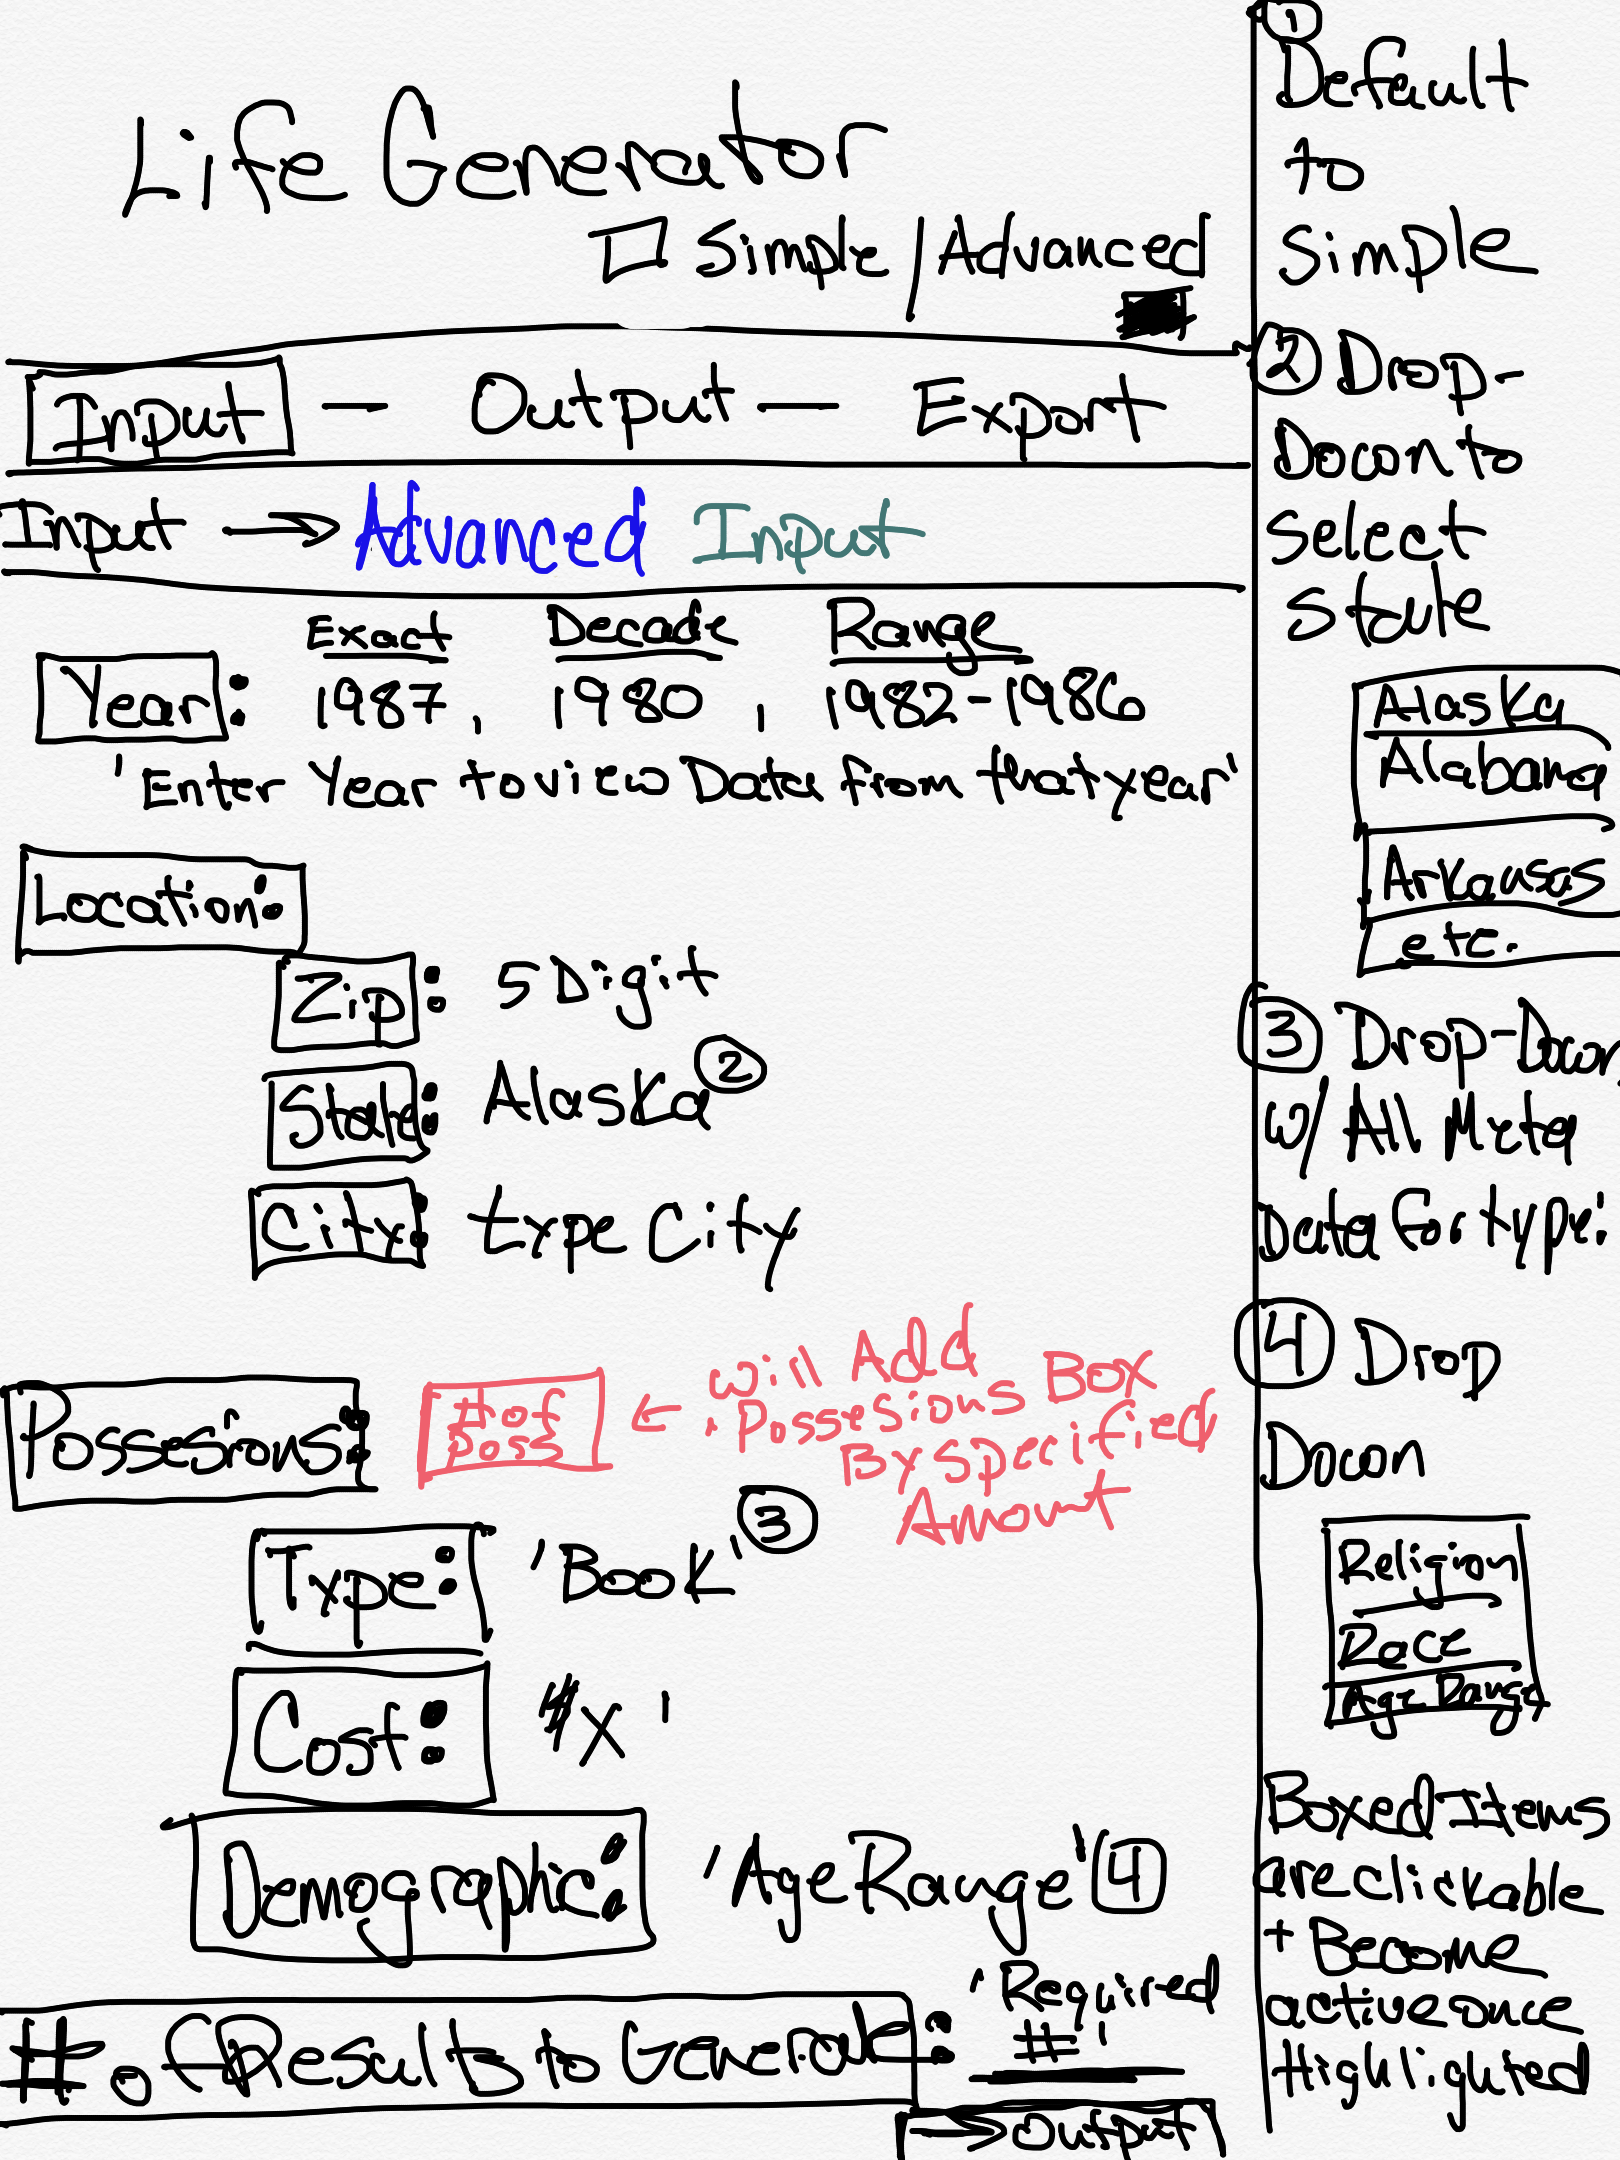 Life Generator
Simple / Advanced
Input — Output — Export
Input → Advanced Input
Exact Decade Range
Year: 1987, 1980, 1982-1986
'Enter Year to view Data from that year'
Location:
Zip: 5 Digit
State: Alaska ②
City: type City
Possesions: # of Poss ← will Add
Possesions Box
By specified
Amount
Type: 'Book' ③
Cost: #x'
Demographic: 'Age Range' ④
# of Results to Generate: 'Required
#'
→ output
①
Default
to
Simple
② Drop-
Down to
Select
State
Alaska
Alabama
Arkansas
etc.
③ Drop-Down
w/ All Meta
Data for type:
④ Drop
Down
Religion
Race
Age Range
Boxed Items
are clickable
+ Become
active once
Highlighted